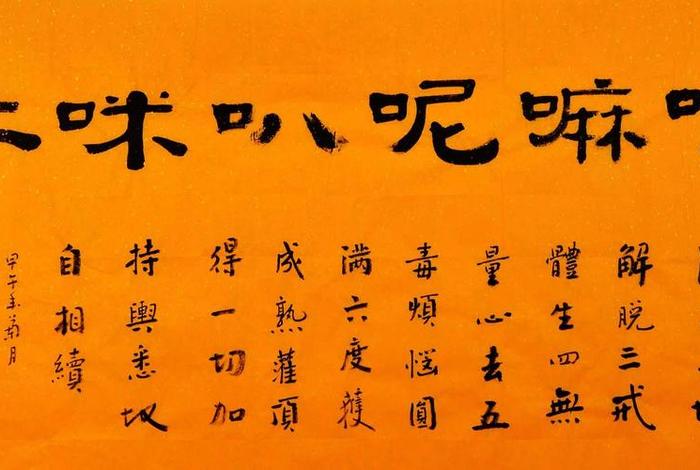 嘛呢叭咪
解脱三戒
體生四無
量心去五
毒煩惱圓
满六度獲
成熟灌頂
得一切加
持與悉
自相續
甲午年菊月